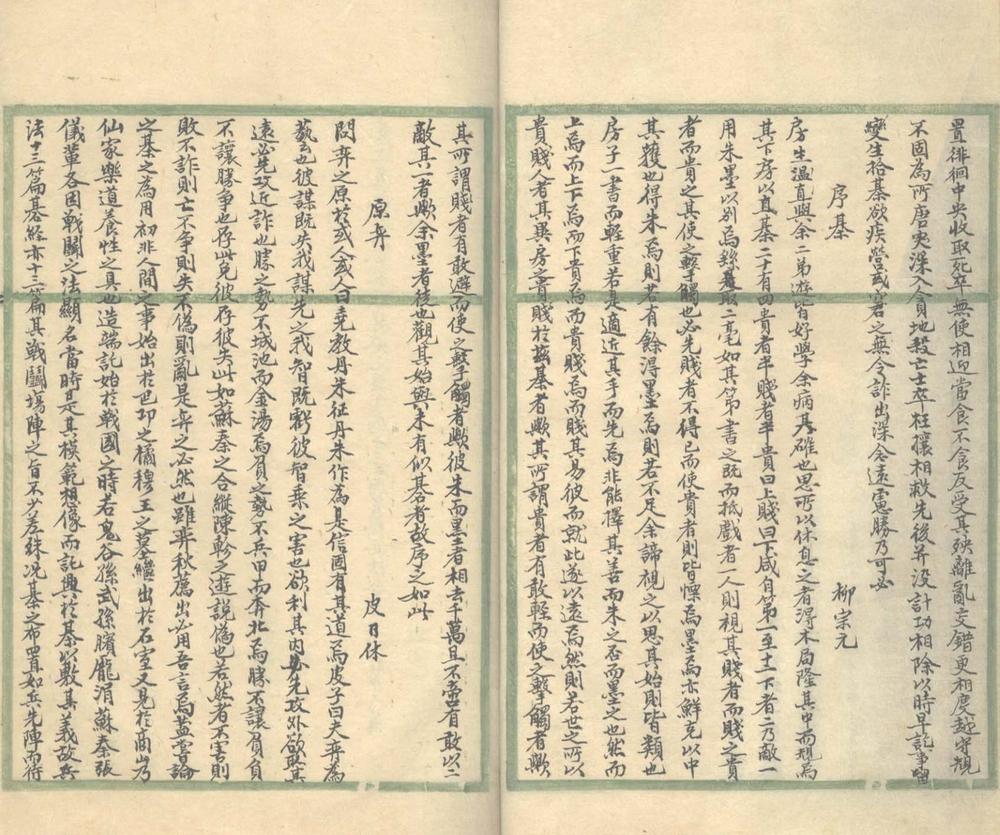 置徘徊中央收取死卒無使相迎當食不食反受其殃離亂交錯更相度越守規
不固為所唐突深入貪地殺亡士卒狂攘相救先後并没計功相除以時早訖事留
變生拾棊欲疾營惑窘乏無令詐出深念遠慮勝乃可必
序棊 柳宗元
房生溫直與余二弟遊皆好學余病其確也思所以休息之者得木局隆其中而規焉
其下房以直棊二十有四貴者半賤者半貴曰上賤曰下咸自第一至十二下者二乃敵一
用朱墨以別焉房於是取二毫如其第書之既而抵戲者二人則視其賤者而賤之貴
者而貴之其使之擊觸也必先賤者不得已而使貴者則皆慄焉惛焉亦鮮克以中
其獲也得朱焉則若有餘得墨焉則若不足余諦視之以思其始則皆類也
房子一書而輕重若是適近其手而先焉非能擇其善而朱之否而墨之也然而
上焉而上下焉而下貴焉而貴賤焉而賤其易彼而就此遂以遠焉然則若世之所以
貴賤人者其異房之貴賤於茲棊者歟其所謂貴者有敢輕而使之擊觸者歟
其所謂賤者有敢避而使之擊觸者歟彼朱而墨者相去千萬且不啻有敢以二
敵其一者歟余墨者徒也觀其始與末有似棊者故序之如此
原弈 皮日休
問弈之原於或人或人曰堯教丹朱征丹朱作焉是信固有其道焉皮子曰夫弈為
藝也彼謀既失我謀先之我智既虧彼智乘之害也欲利其內必先攻外欲取其
遠必先攻近詐也勝之勢不城池而金湯焉負之勢不兵甲而奔北焉勝不讓負負
不讓勝爭也存此免彼存彼失此如蘇秦之合縱陳軫之遊說僞也若然者不害則
敗不詐則亡不爭則失不僞則亂是弈之必然也雖弈秋薦出必用吾言焉蓋嘗論
之棊之為用初非人間之事始出於巴卭之橘穆王之墓繼出於石室又見於商山乃
仙家樂道養性之具也造端託始於戰國之時若鬼谷孫武孫臏龐涓蘇秦張
儀輩各因戰鬭之法顯名當時是其模範想像而託興於棊以敷其義故兵
法十三篇棊經亦十三篇其戰鬭塲陣之旨不少差殊况棊之布置如兵先陣而待